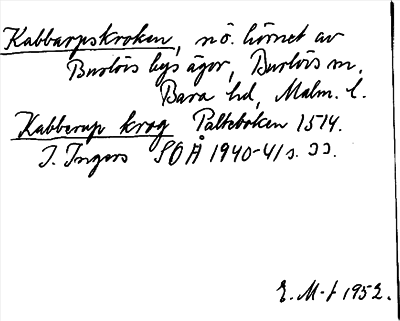 Kabbarpskroken, nö. hörnet av
Burlövs bys ägor, Burlövs sn,
Bara hd, Malm. l.
Kabberup krog Palteboken 1514.
I. Ingers SOÅ 1940-41 s. 33.
E. M-f 1952.